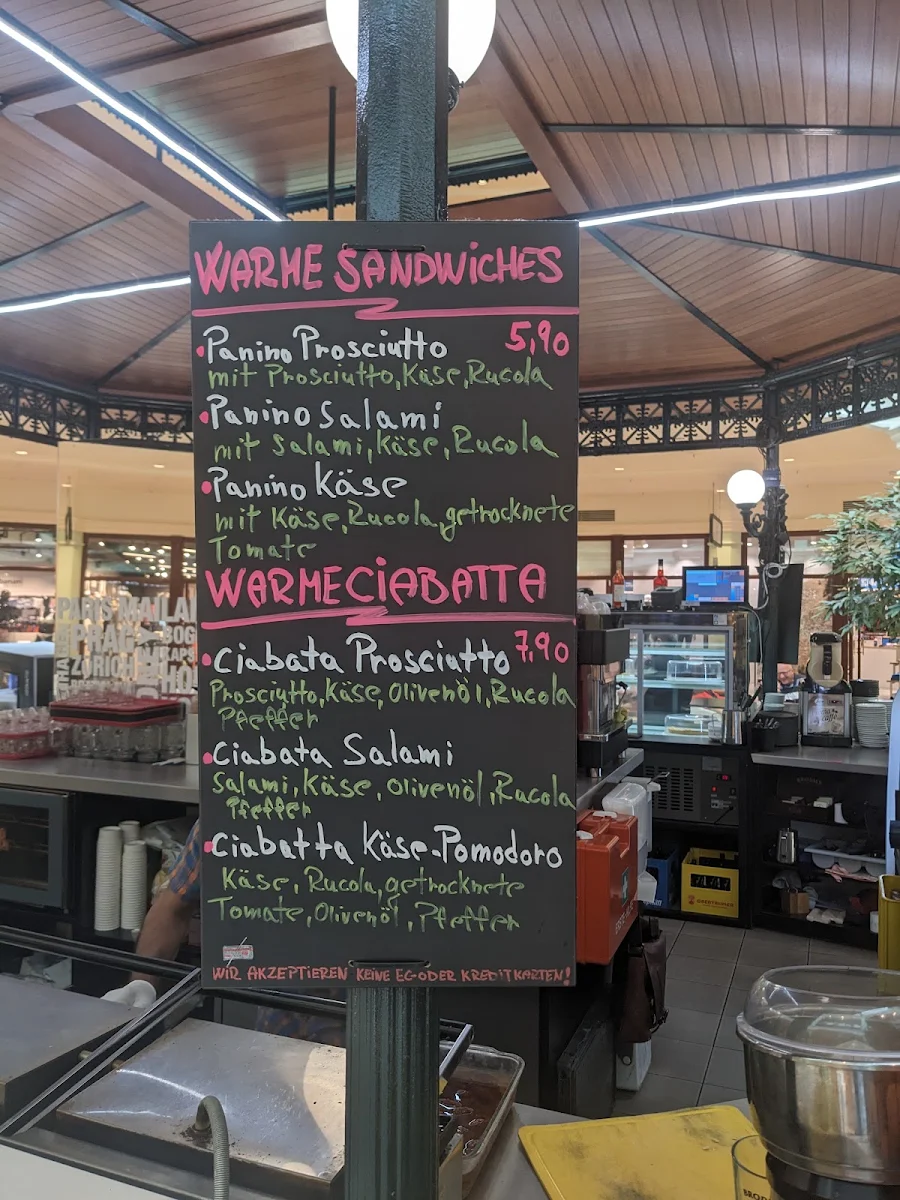 WARME SANDWICHES
Panino Prosciutto 5,90
mit Prosciutto, Käse, Rucola
Panino Salami
mit Salami, Käse, Rucola
Panino Käse
mit Käse, Rucola, getrocknete
Tomate
WARME CIABATTA
Ciabata Prosciutto 7,90
Prosciutto, Käse, Olivenöl, Rucola
Pfeffer
Ciabata Salami
Salami, Käse, Olivenöl, Rucola
Pfeffer
Ciabatta Käse-Pomodoro
Käse, Rucola, getrocknete
Tomate, Olivenöl, Pfeffer
WIR AKZEPTIEREN KEINE EC ODER KREDITKARTEN!
PARIS MAILA
PRAG
ZÜRICH